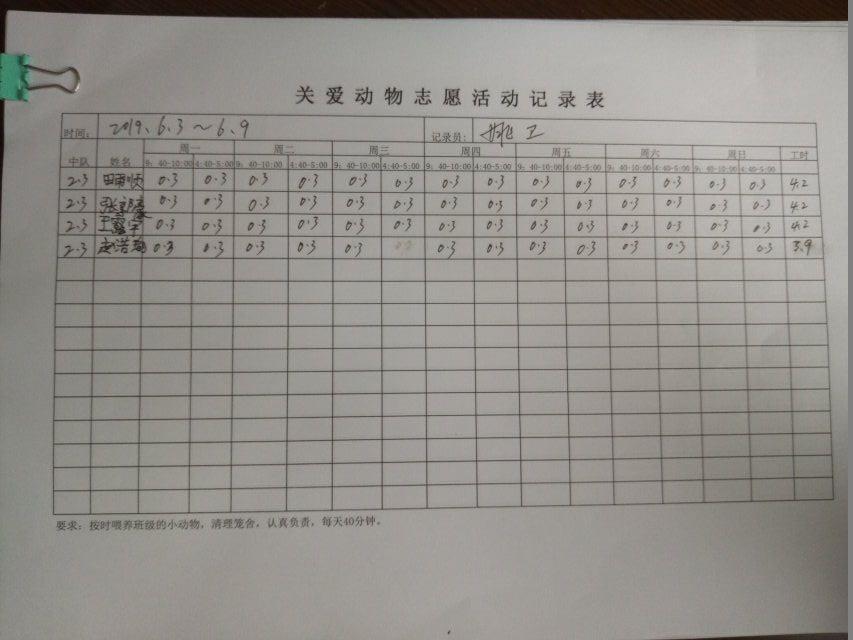 关爱动物志愿活动记录表
时间: 2019.6.3~6.9 记录员: 姚卫
周一 周二 周三 周四 周五 周六 周日 工时
中队 姓名 9:40-10:00 4:40-5:00 9:40-10:00 4:40-5:00 9:40-10:00 4:40-5:00 9:40-10:00 4:40-5:00 9:40-10:00 4:40-5:00 9:40-10:00 4:40-5:00 9:40-10:00 4:40-5:00
2.3 0.3 0.3 0.3 0.3 0.3 0.3 0.3 0.3 0.3 0.3 0.3 0.3 0.3 0.3 4.2
2.3 0.3 0.3 0.3 0.3 0.3 0.3 0.3 0.3 0.3 0.3 0.3 0.3 0.3 0.3 4.2
2.3 0.3 0.3 0.3 0.3 0.3 0.3 0.3 0.3 0.3 0.3 0.3 0.3 0.3 0.3 4.2
2.3 0.3 0.3 0.3 0.3 0.3 0.3 0.3 0.3 0.3 0.3 0.3 0.3 0.3 3.9
要求:按时喂养班级的小动物,清理笼舍,认真负责,每天40分钟。